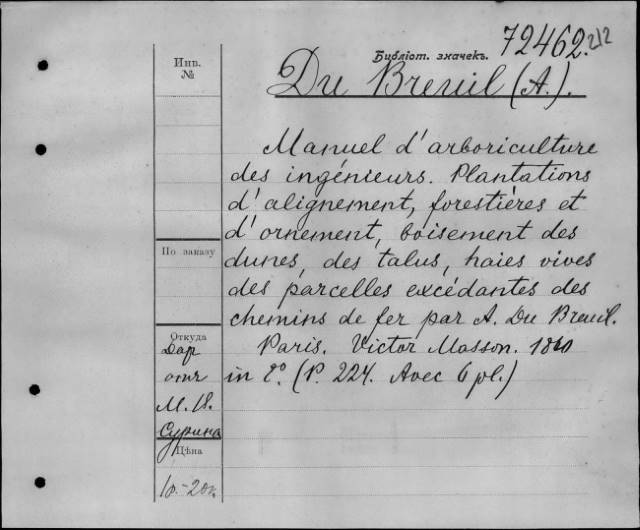 72462 2/2
Библіот. значекъ.
Du Breuil (A.).
Инв.
№
Manuel d'arboriculture
des ingénieurs. Plantations
d'alignement, forestières et
d'ornement, boisement des
dunes, des talus, haies vives
des parcelles excédantes des
chemins de fer par A. Du Breuil.
Paris. Victor Masson. 1860
in 8º. (P. 224. Avec 6 pl.)
По заказу
Откуда
Дар
отъ
М. И.
Сурина
Цѣна
1р.-20к.